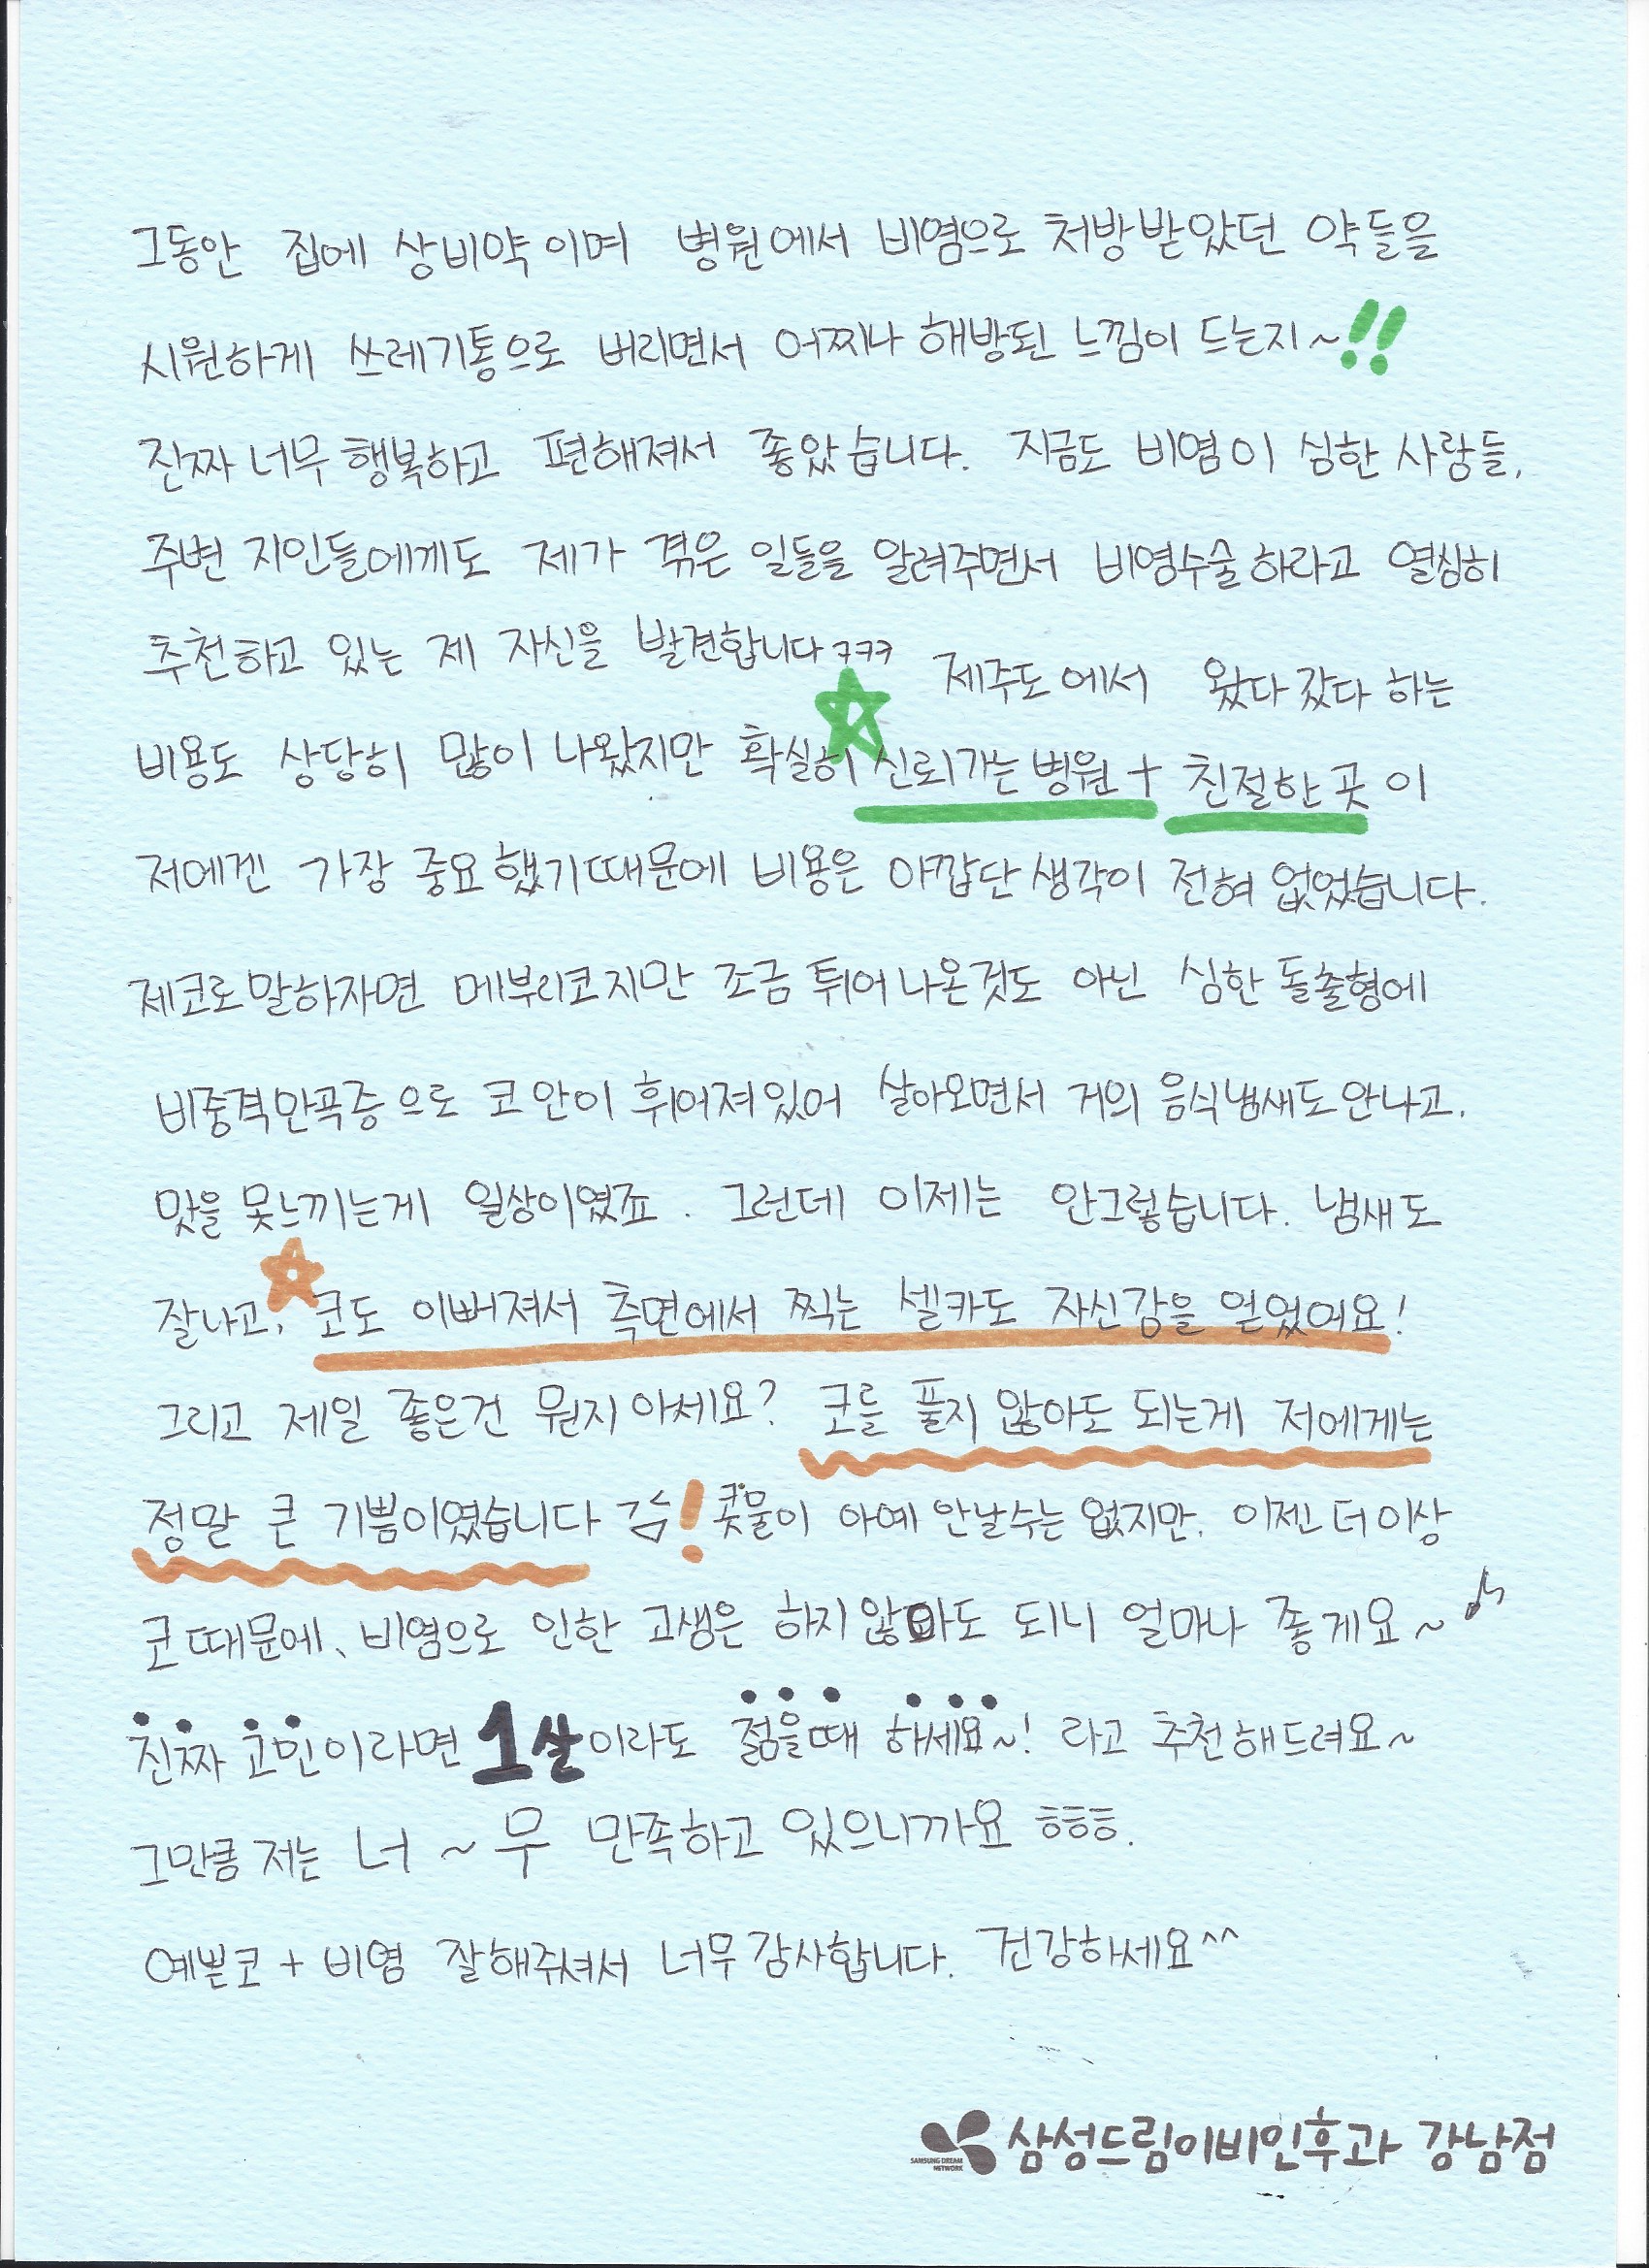 그동안 집에 상비약이며 병원에서 비염으로 처방받았던 약들을
시원하게 쓰레기통으로 버리면서 어찌나 해방된 느낌이 드는지~!!
진짜 너무 행복하고 편해져서 좋았습니다. 지금도 비염이 심한 사람들,
주변 지인들에게도 제가 겪은 일들을 알려주면서 비염수술하라고 열심히
추천하고 있는 제 자신을 발견합니다 ㅋㅋㅋ 제주도에서 왔다 갔다 하는
비용도 상당히 많이 나왔지만 확실히 신뢰가는 병원 + 친절한 곳이
저에겐 가장 중요했기때문에 비용은 아깝단 생각이 전혀 없었습니다.
제코로 말하자면 메부리코지만 조금 튀어나온것도 아닌 심한 돌출형에
비중격만곡증으로 코 안이 휘어져있어 살아오면서 거의 음식냄새도 안나고,
맛을 못느끼는게 일상이였죠. 그런데 이제는 안그렇습니다. 냄새도
잘나고, 코도 이뻐져서 측면에서 찍는 셀카도 자신감을 얻었어요!
그리고 제일 좋은건 뭔지 아세요? 코를 풀지 않아도 되는게 저에게는
정말 큰 기쁨이였습니다 굿! 콧물이 아예 안날수는 없지만, 이젠 더이상
코 때문에, 비염으로 인한 고생은 하지 않아도 되니 얼마나 좋게요~♪
진짜 고민이라면 1살이라도 젊을때 하세요~! 라고 추천해드려요~
그만큼 저는 너~무 만족하고 있으니까요 ㅎㅎㅎ.
예쁜코 + 비염 잘해주셔서 너무 감사합니다. 건강하세요^^
SAMSUNG DREAM NETWORK 삼성드림이비인후과 강남점